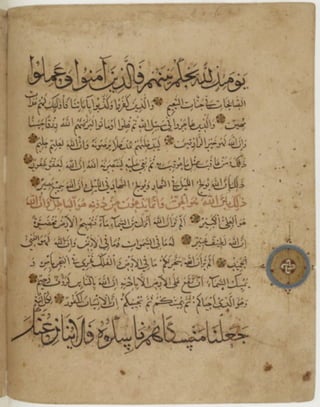 يومئذ لله يحكم بينهم فالذين آمنوا وعملوا
الصالحات في جنات النعيم والذين كفروا وكذبوا بآياتنا فأولئك لهم عذاب
مهين والذين هاجروا في سبيل الله ثم قتلوا أو ماتوا ليرزقنهم الله رزقا حسنا
وإن الله لهو خير الرازقين ليدخلنهم مدخلا يرضونه وإن الله لعليم حليم
ذلك ومن عاقب بمثل ما عوقب به ثم بغي عليه لينصرنه الله إن الله لعفو غفور
ذلك بأن الله يولج الليل في النهار ويولج النهار في الليل وأن الله سميع بصير
ذلك بأن الله هو الحق وأن ما يدعون من دونه هو الباطل وأن الله
هو العلي الكبير ألم تر أن الله أنزل من السماء ماء فتصبح الأرض مخضرة
إن الله لطيف خبير له ما في السموات وما في الأرض وإن الله لهو الغني
الحميد ألم تر أن الله سخر لكم ما في الأرض والفلك تجري في البحر بأمره و
يمسك السماء أن تقع على الأرض إلا بإذنه إن الله بالناس لرؤف رحيم
وهو الذي أحياكم ثم يميتكم ثم يحييكم إن الإنسان لكفور لكل أمة
جعلنا منسكا هم ناسكوه فلا ينازعنك